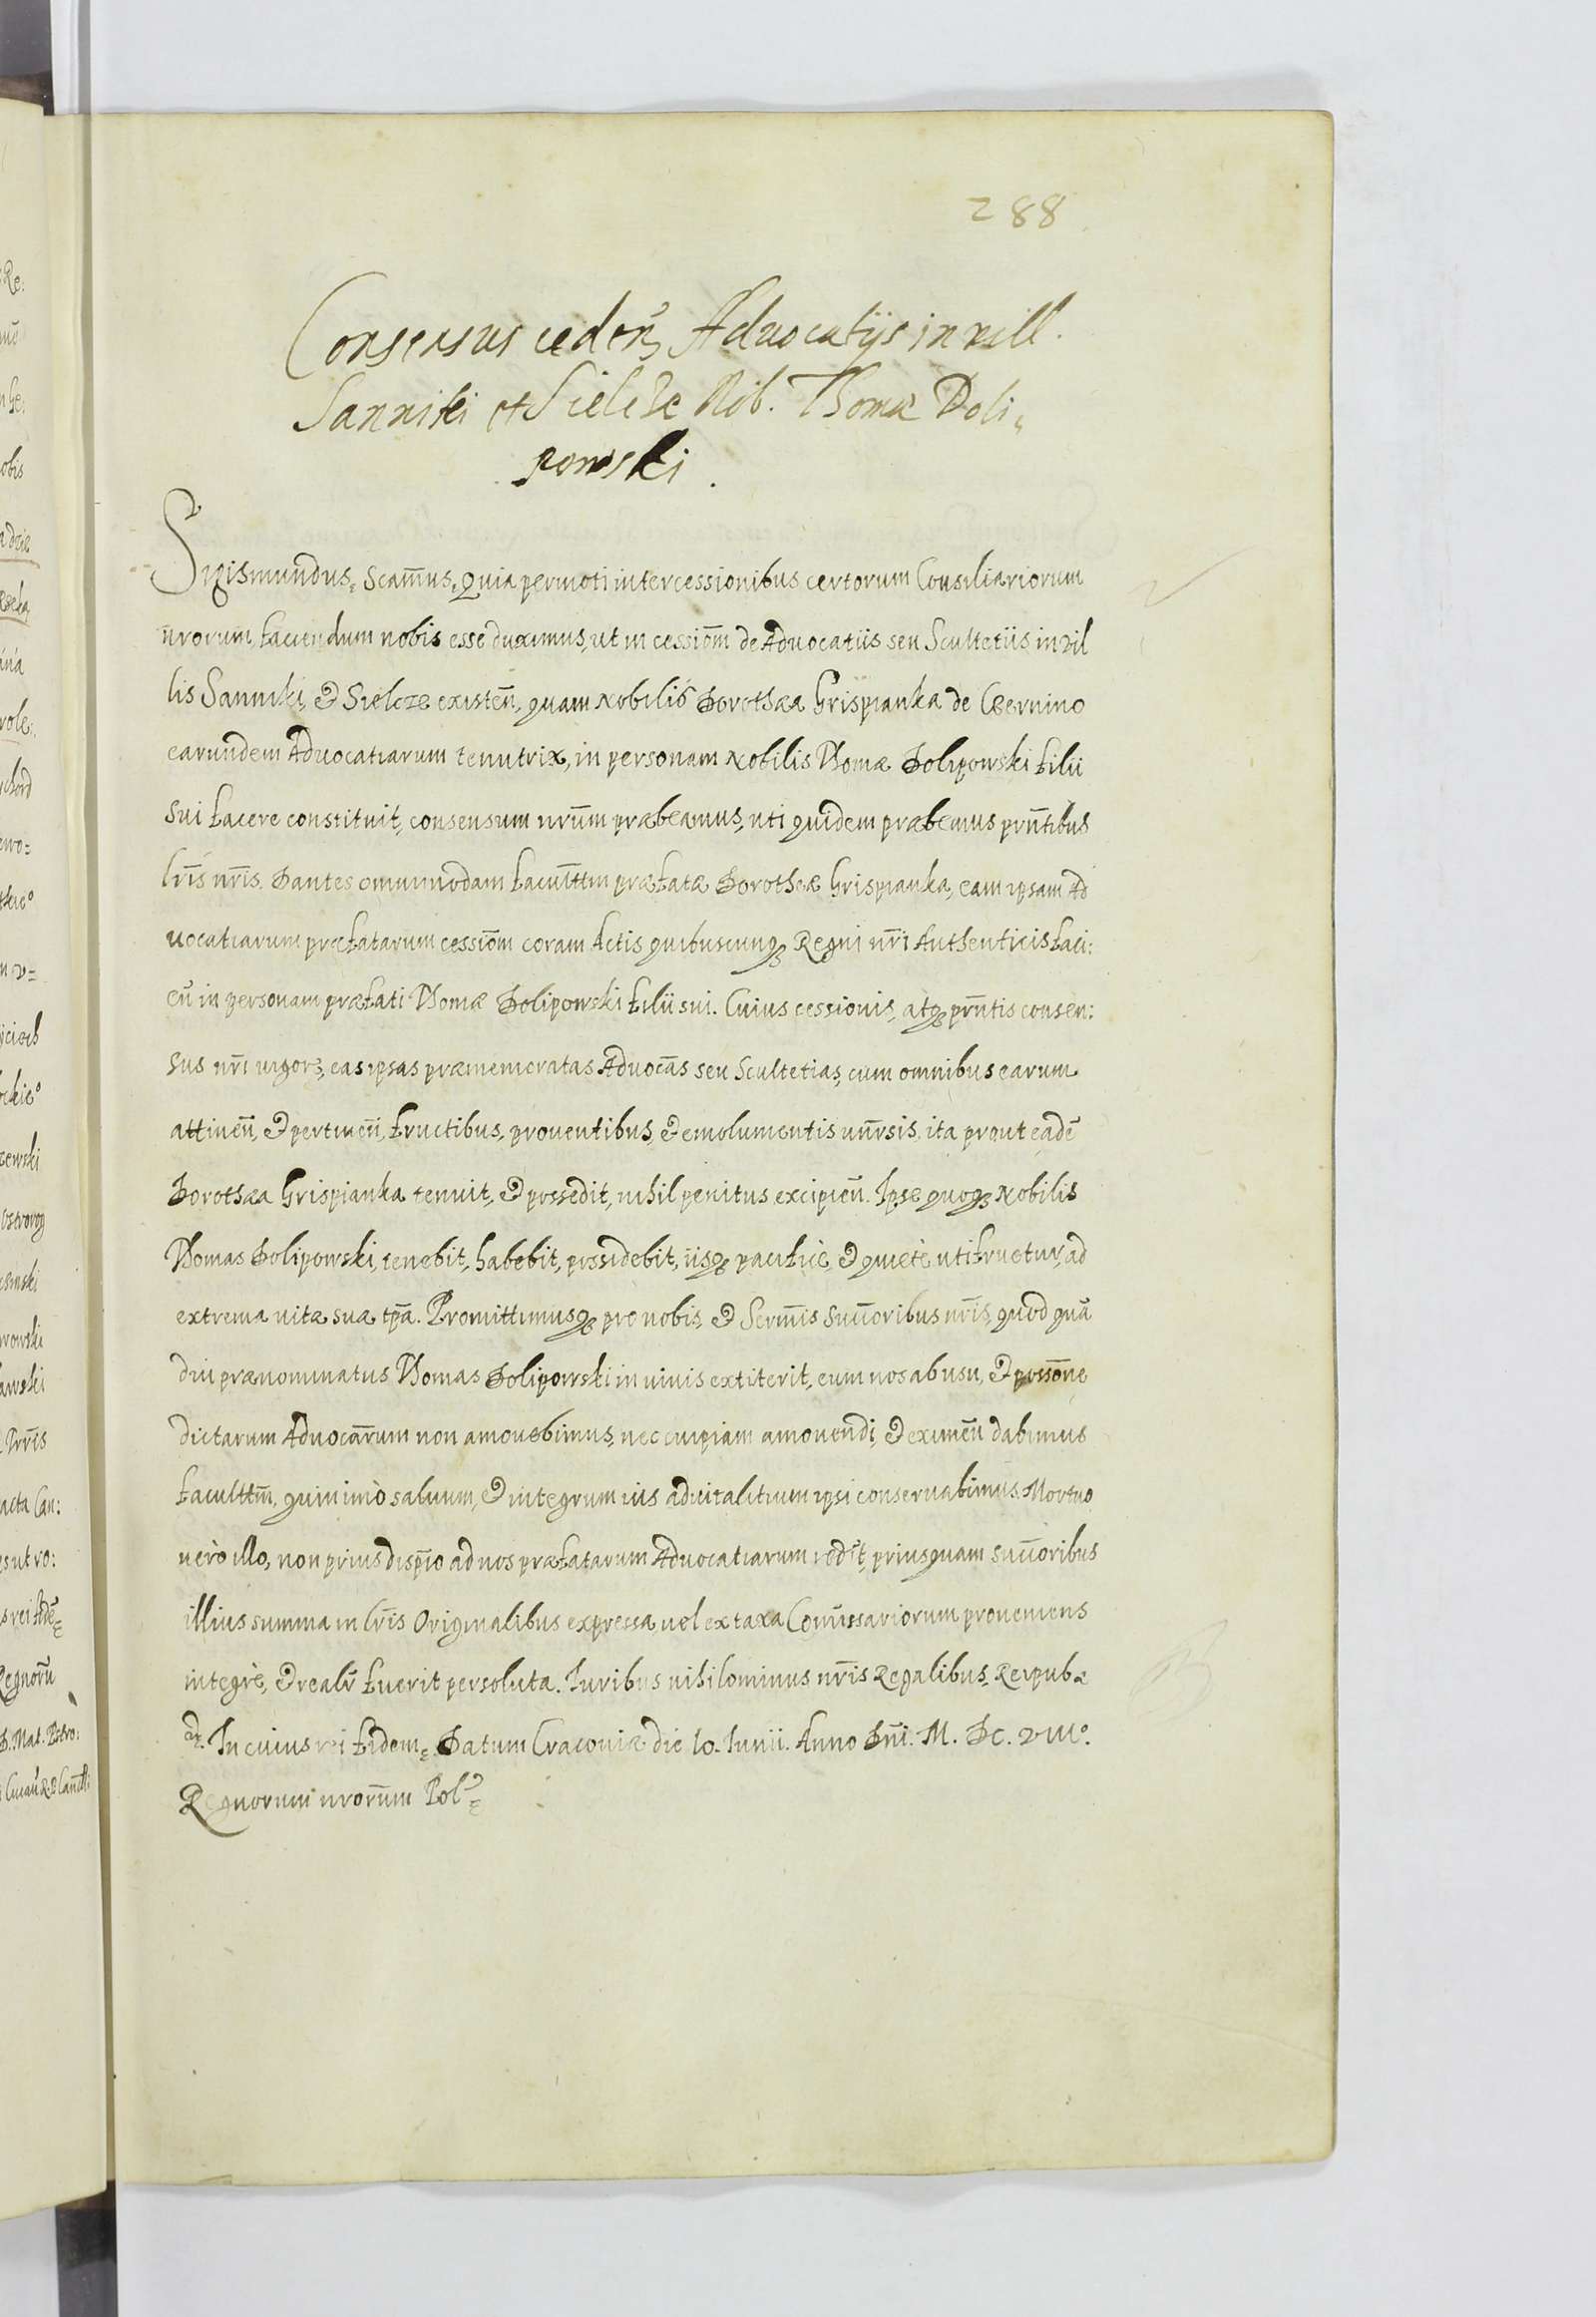 288
Consensus ceden̄ Advocatijs in vill.
Sanniki et Sielcze Nob. Thomæ Doli„
powski.
Sigismundus, Scam̄us, Quia permoti intercessionibus certorum Consiliariorum
n̄rorum, faciendum nobis esse duximus, ut in cessiōm de Advocatiis seu Scultetiis in vil
lis Sanniki, & Sielcze existen̄, quam Nobilis Dorothæa Grispianka de Czernino
earundem Advocatiarum tenutrix, in personam Nobilis Thomæ Dolipowski filii
sui facere constituit, consensum nr̄um præbeamus, uti quidem præbemus prn̄tibus
lr̄is nr̄is. Dantes omnimodam facultt̄m præfatæ Dorotheæ Grispianka, eam ipsam Ad
vocatiarum præfatarum cessiōm coram Actis quibuscunq₃ Regni nr̄i Authenticis faci:
en̄ in personam præfati Thomæ Dolipowski filii sui. Cuius cessionis, atq₃ prn̄tis consen:
sus nr̄i vigore, eas ipsas præmemoratas Advocās seu Scultetias, cum omnibus earum
attinen̄, & pertinen̄, fructibus, proventibus, & emolumentis unr̄sis, ita prout eadē
Dorothæa Grispianka tenuit, & possedit, nihil penitus excipien̄. Ipse quoq₃ Nobilis
Thomas Dolipowski, tenebit, habebit, possidebit, iisq₃ pacificè, & quietè utifruetur, ad
extrema vitæ suæ tp̄a. Promittimusq₃ pro nobis, & Serm̄is Suc̄oribus nr̄is, quod quā
diu prænominatus Thomas Dolipowski in vivis extiterit, eum nos ab usu, & possōne
dictarum Advocār̄um non amovebimus, nec cuipiam amovendi, & eximen̄ dabimus
facultt̄m, quinimò salvum, & integrum ius advitalitium ipsi conservabimus. Mortuo
verò illo, non prius disp̄o ad nos præfatarum Advocatiarum redīt, priusquam suc̄oribus
illius summa in lr̄is Originalibus expressa, vel ex taxa Com̄issariorum proveniens
integrè, & realr̄ fuerit persoluta. Iuribus nihilominus nr̄is Regalibus, Reipub„
&. In cuius rei fidem„ Datum Cracoviæ die 10. Iunii. Anno Dn̄i. M. DC. VIIIº.
Regnorum nrorūm Pol„